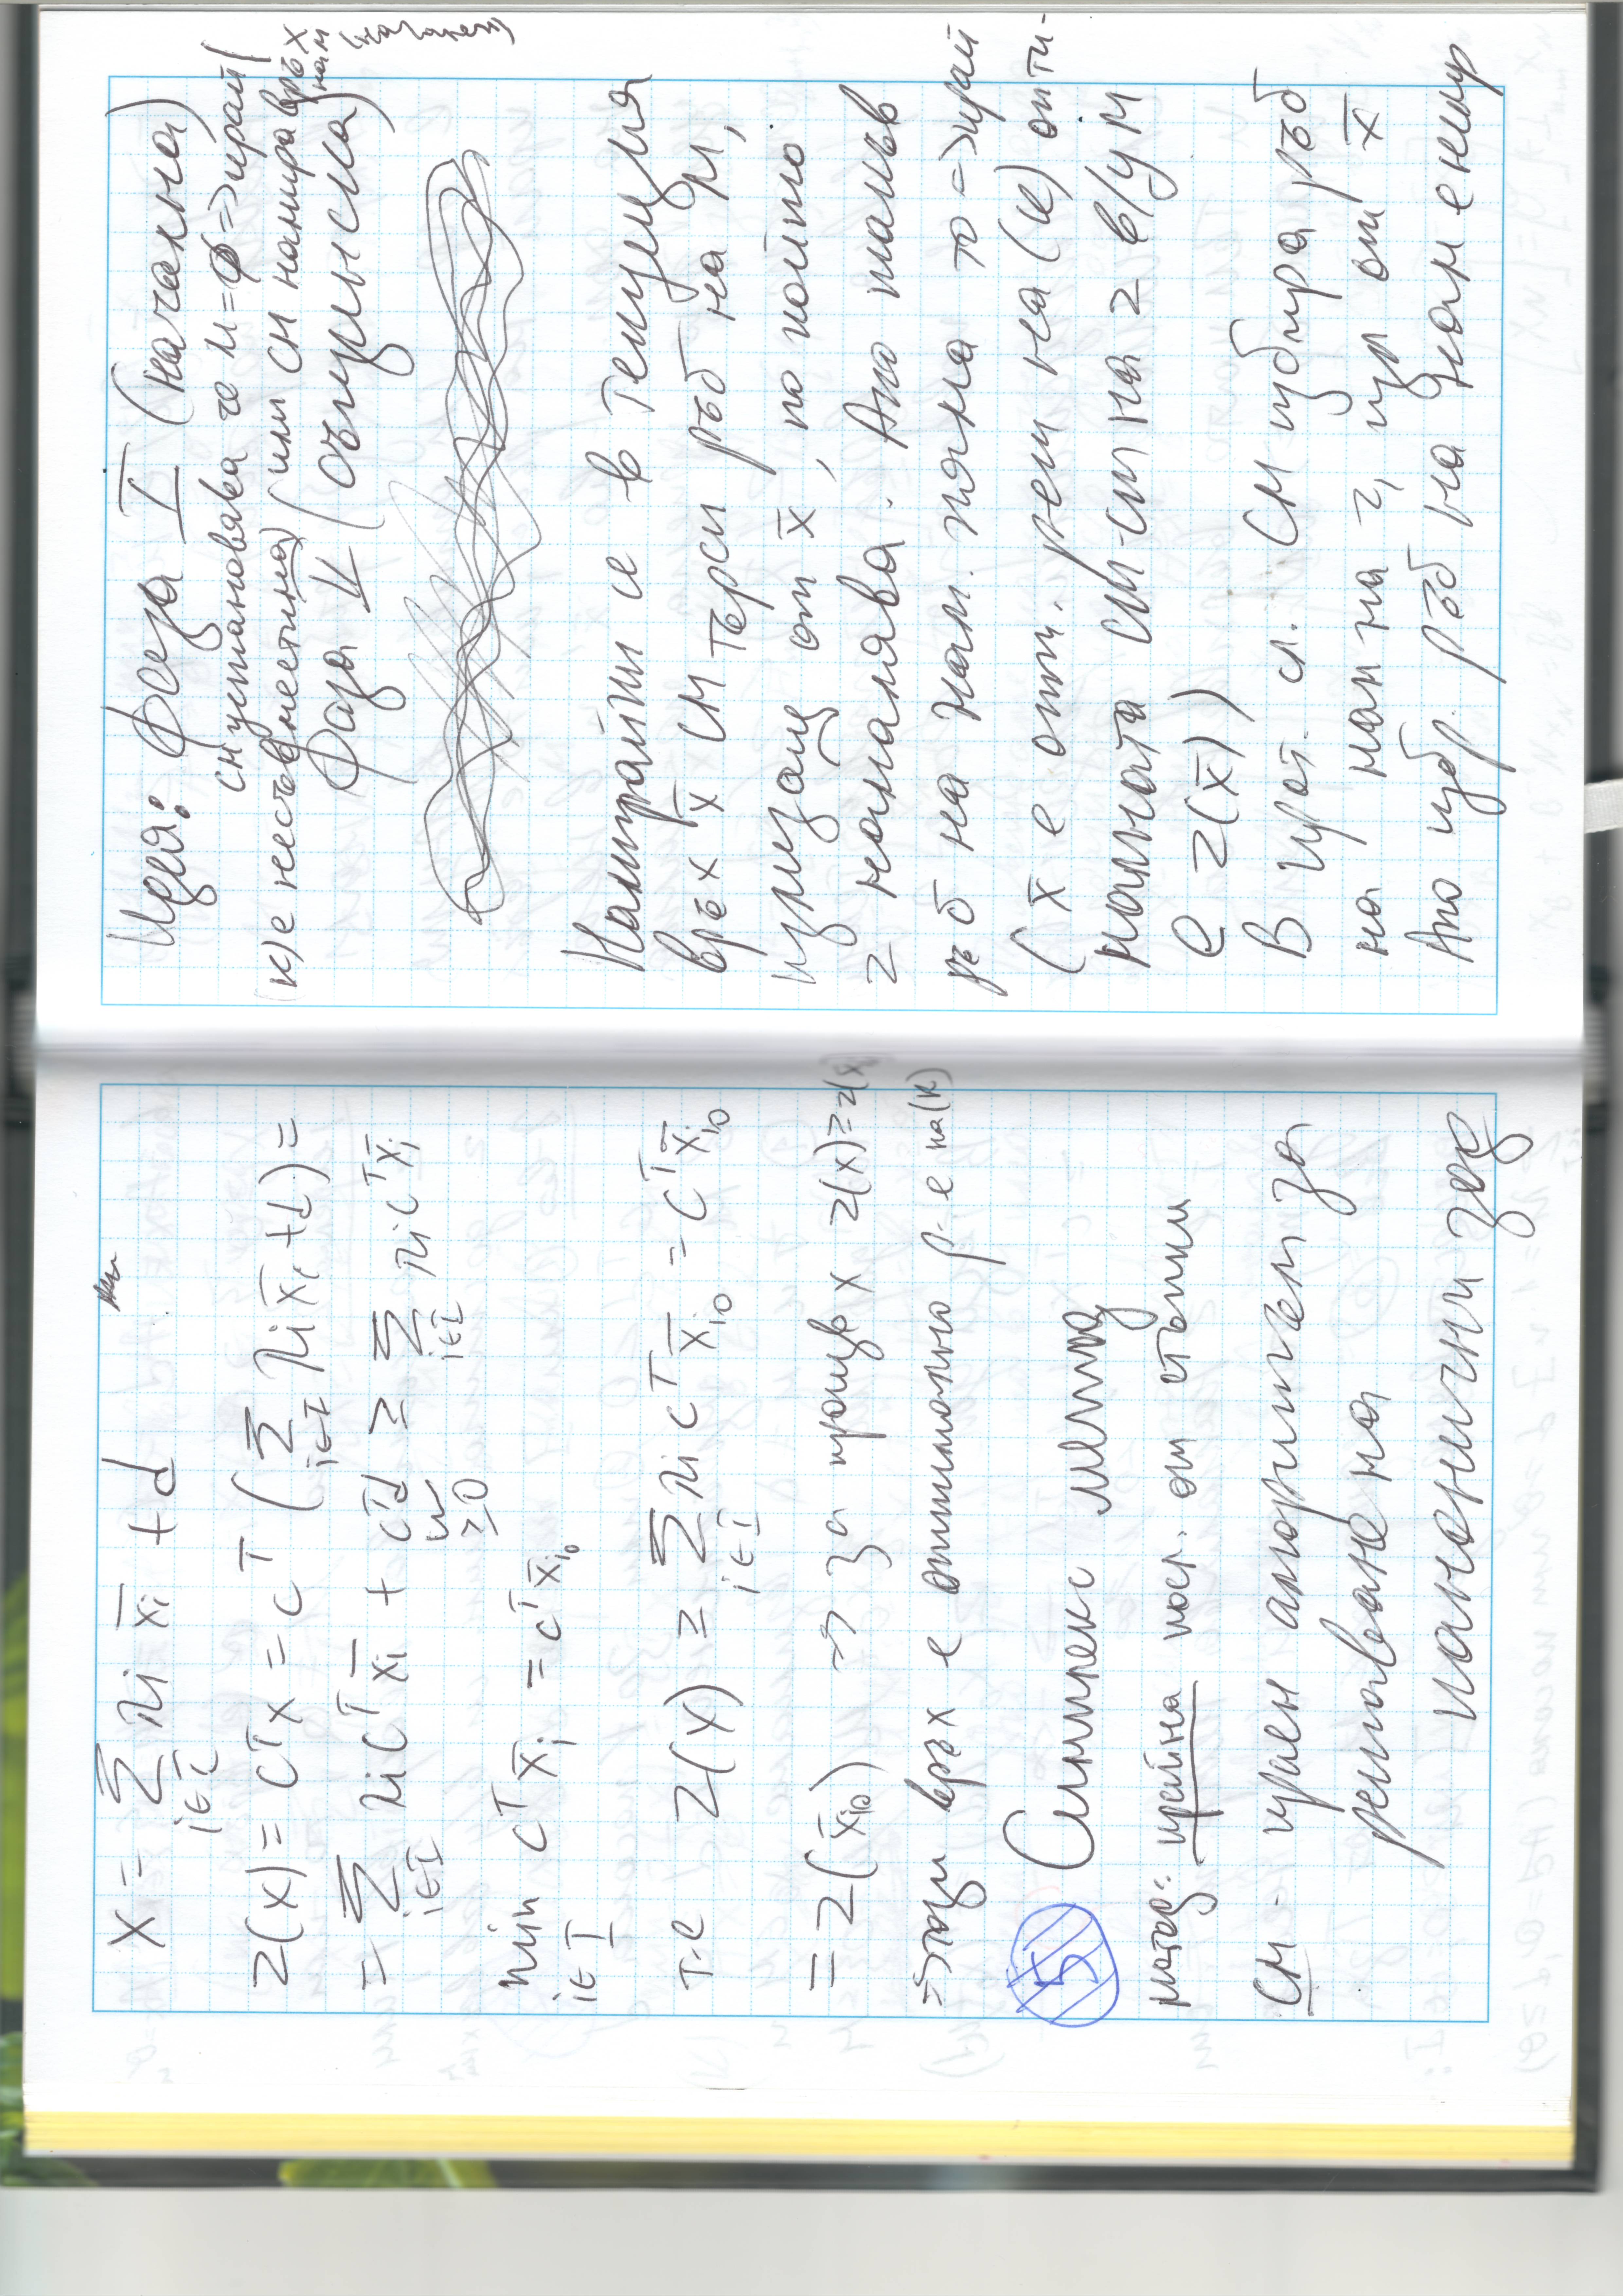 x = Σ λi x̄i + d
i∈I
z(x) = cᵀx = cᵀ ( Σ λi x̄i + d) =
i∈I
= Σ λi cᵀ x̄i + cᵀd ≥ Σ λi cᵀx̄i
i∈I ≥0 i∈I
min cᵀ x̄i = cᵀx̄i₀
i∈I
т.е z(x) ≥ Σ λi cᵀ x̄i₀ = cᵀ x̄i₀
i∈I
= z(x̄i₀) → за произв x z(x) ≥ z(x̄
=> този връх е оптимално р-е на(к)
5 Симплекс метод
метод: крайна посл. от стъпки
СМ - краен алгоритъм за
решаване на
канонични зад
Идея: фаза I (начална)
см установява че M=ф => край
(к) е несъвместима) (или см намира връх
на M
Фаза II (същинска)
Намирайки се в текущия
връх x̄ СМ търси ръб на M,
излизащ от x̄, по който
z намалява. Ако такъв
ръб на нам. няма то => край
(x̄ е опт. реш на (к) опти-
малната ст-ст на z в/у M
е z(x̄))
В прот. сл. СМ избира ръб
на нам на z, изл от x̄
Ако избр. ръб на нам е неогр